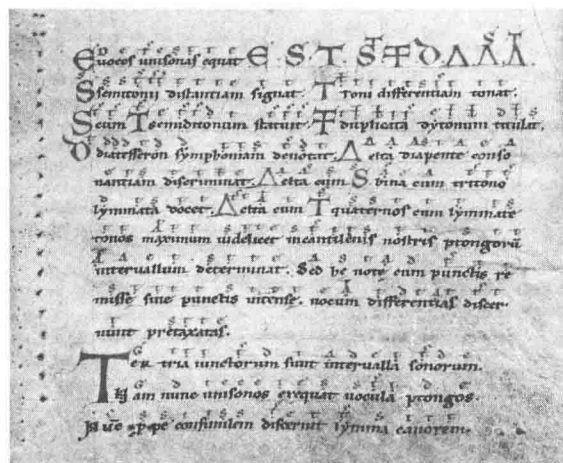 E uoces unisonas equat E. S. T. S̄T. TT. D. Δ. Δ̊. Δ̄.
S semitonii distantiam signat. T Toni differentiam tonat.
S cum T semiditonum statuit. T duplicata dytonum titulat.
D diatesseron symphoniam denotat. Δ elta diapente conso
nantiam discriminat. Δelta cum S bina cum tritono
lymmata docet. Δelta cum T quaternos cum lymmate
tonos maximum uidelicet incantilenis nostris ptongorū
interuallum determinat. Sed he note cum punctis re
misse sine punctis intense. uocum differentias discer
nunt pretaxatas.
Ter tria iunctorum sunt interualla sonorum.
Nam nunc unisonos exequat uocula ptongos.
Nūc ꝓpe consimilem discernit lymma canorem.